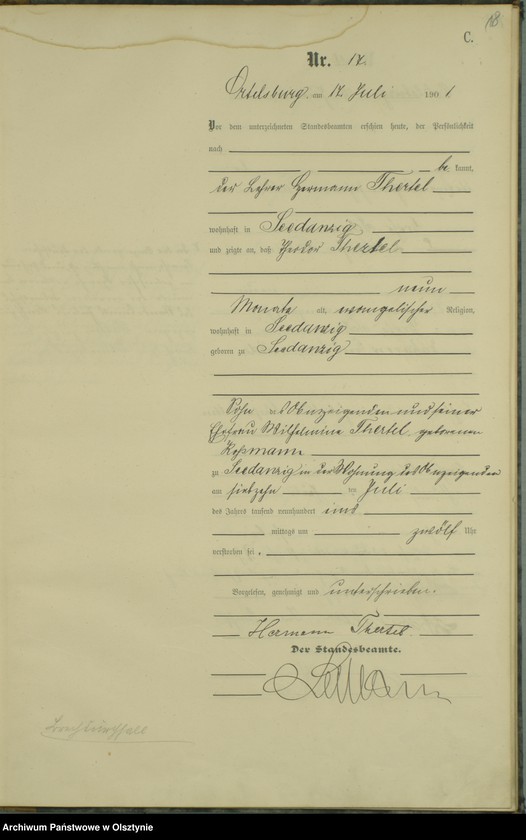 18
C.
Nr. 17.
Ortelsburg, am 17. Juli 1901
Vor dem unterzeichneten Standesbeamten erschien heute, der Persönlichkeit
nach
be kannt,
der Lehrer Hermann Thertel
wohnhaft in Seedanzig
und zeigte an, daß Theodor Thertel
neun
Monate alt, evangelischer Religion,
wohnhaft in Seedanzig
geboren zu Seedanzig
Sohn des Anzeigenden und seiner
Ehefrau Wilhelmine Thertel geborenen
zu Seedanzig in der Wohnung des Anzeigenden
am siebzehn ten Juli
des Jahres tausend neunhundert eins
mittags um zwölf Uhr
verstorben sei.
Vorgelesen, genehmigt und unterschrieben.
Hermann Thertel
Der Standesbeamte.
Archiwum Państwowe w Olsztynie